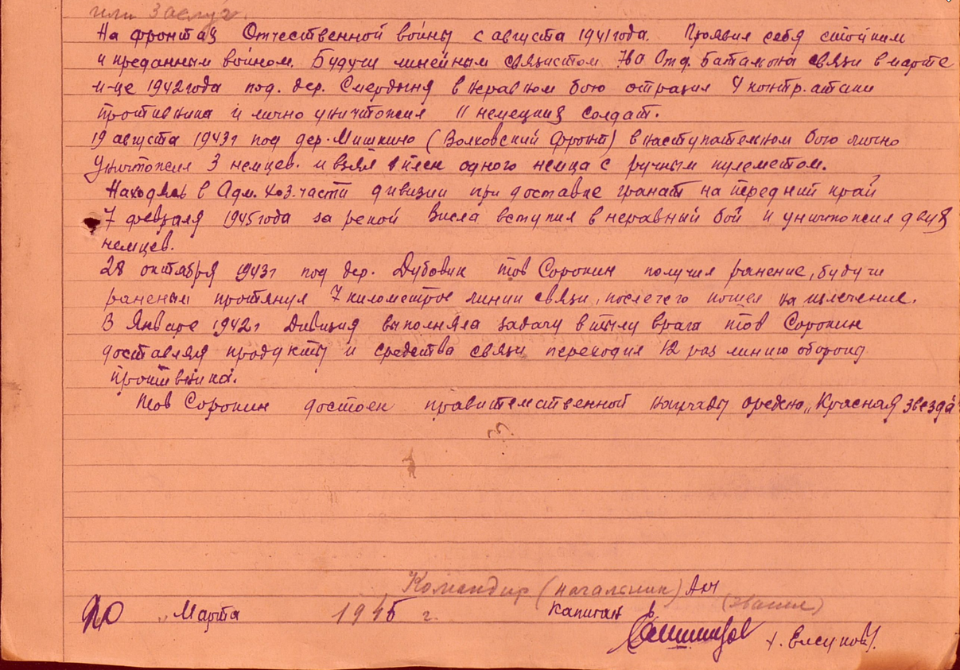 или заслуг
На фронтах Отечественной войны с августа 1941 года. Проявил себя стойким
и преданным войном. Будучи линейным связистом Отд. батальона связи в марте
м-це 1942 года под. дер. Смердыня в неравном бою отразил 4 контр.атаки
противника и лично уничтожил 11 немецких солдат.
19 августа 1943г под дер. Мишкино (Волховский фронт) в наступательном бою лично
уничтожил 3 немцев. и взял в плен одного немца с ручным пулеметом.
Находясь в Адм. хоз. части дивизии при доставке гранат на передний край
7 февраля 1945 года за рекой Висла вступил в неравный бой и уничтожил двух
немцев.
28 октября 1943г под дер. Дубовик тов Сорокин получил ранение, будучи
раненым протянул 7 километров линии связи, после чего пошел на излечение.
В Январе 1942г Дивизия выполняла задачу в тылу врага тов Сорокин
доставляя продукты и средства связи переходил 12 раз линию обороны
противника.
тов Сорокин достоен правительственной награды ордена „Красная звезда"
Командир (начальник) Ахч
„ Марта 1945 г. Капитан (звание)
х. Елсуков).